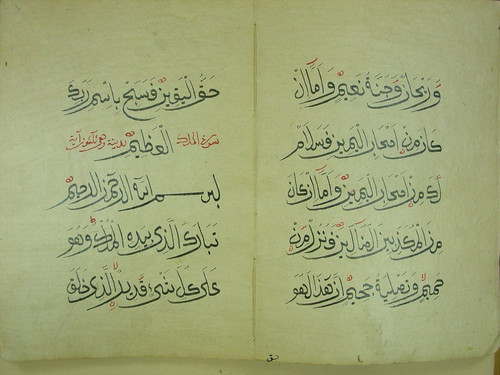 وريحان وجنة نعيم واما ان
كان من اصحاب اليمين فسلام
لك من اصحاب اليمين واما ان كان
من المكذبين الضالين فنزل من
حميم وتصلية جحيم ان هذا لهو
حق اليقين فسبح باسم ربك
العظيم سورة الملك وهي ثلثون آية
بسم الله الرحمن الرحيم
تبارك الذي بيده الملك وهو
على كل شيء قدير الذي خلق